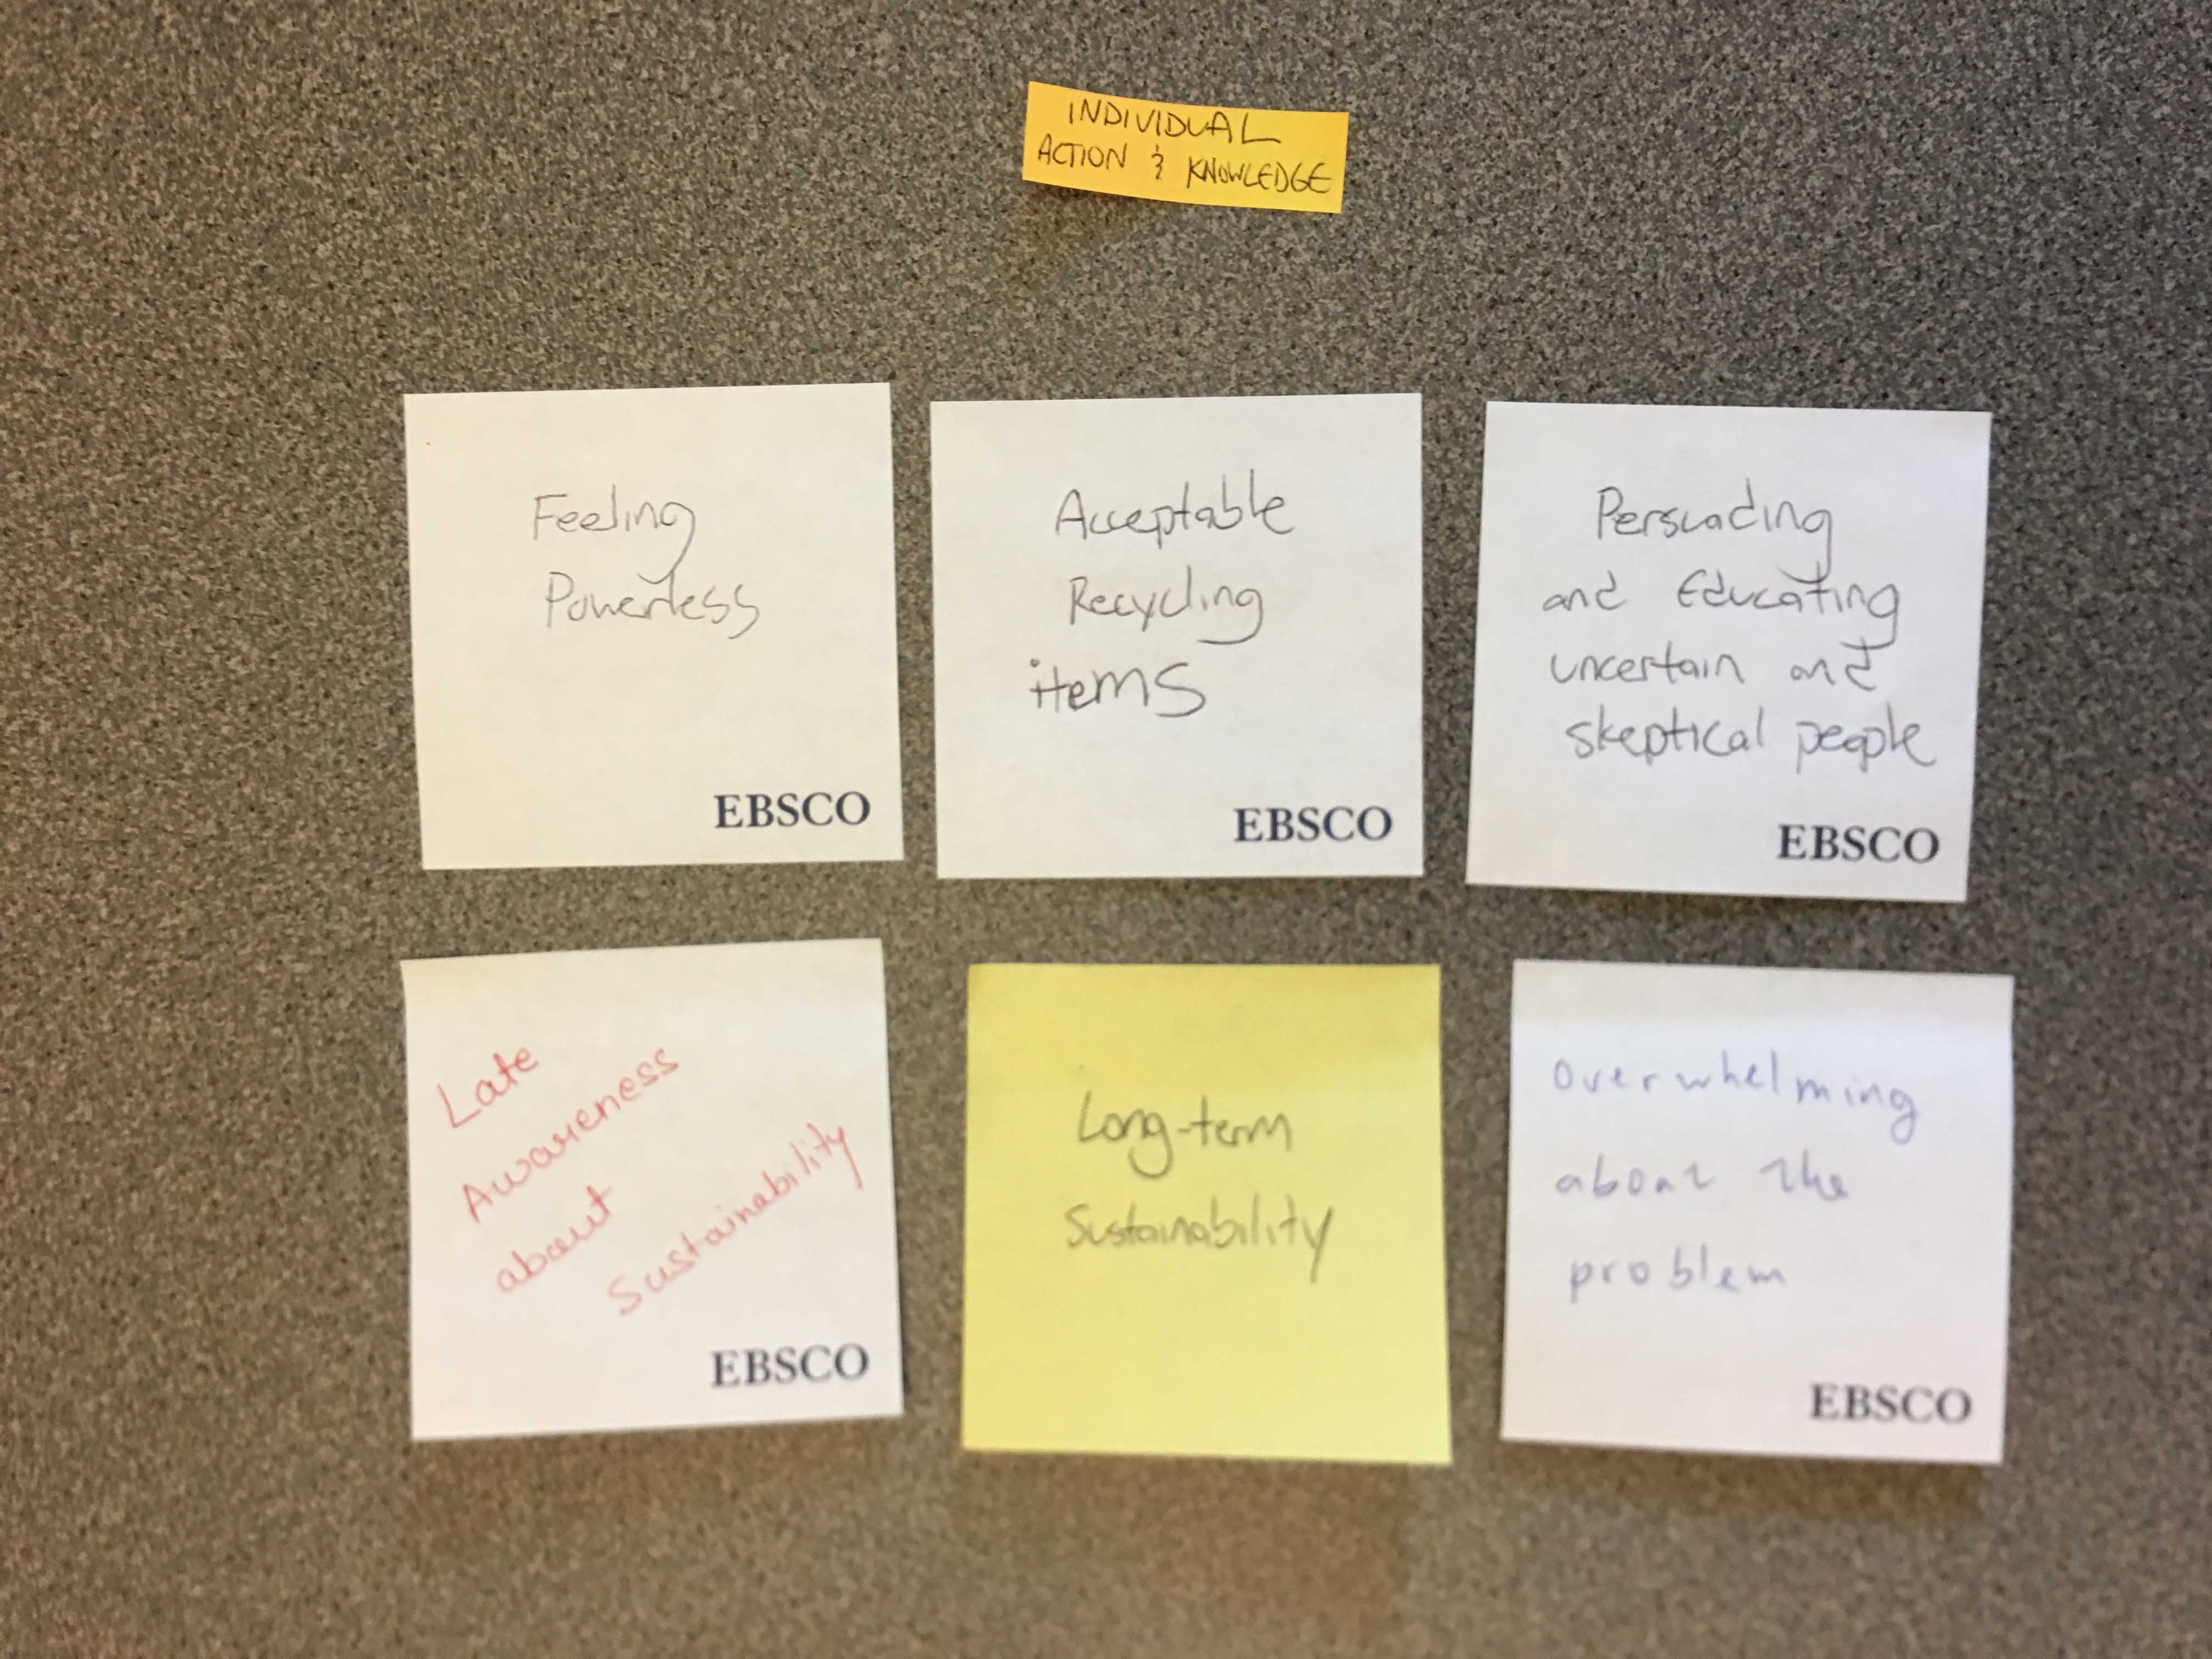 INDIVIDUAL
ACTION & KNOWLEDGE
Feeling
Powerless
EBSCO
Acceptable
Recycling
items
EBSCO
Persuading
and Educating
uncertain and
skeptical people
EBSCO
Late
Awareness
about
Sustainability
EBSCO
Long-term
Sustainability
Overwhelming
about the
problem
EBSCO